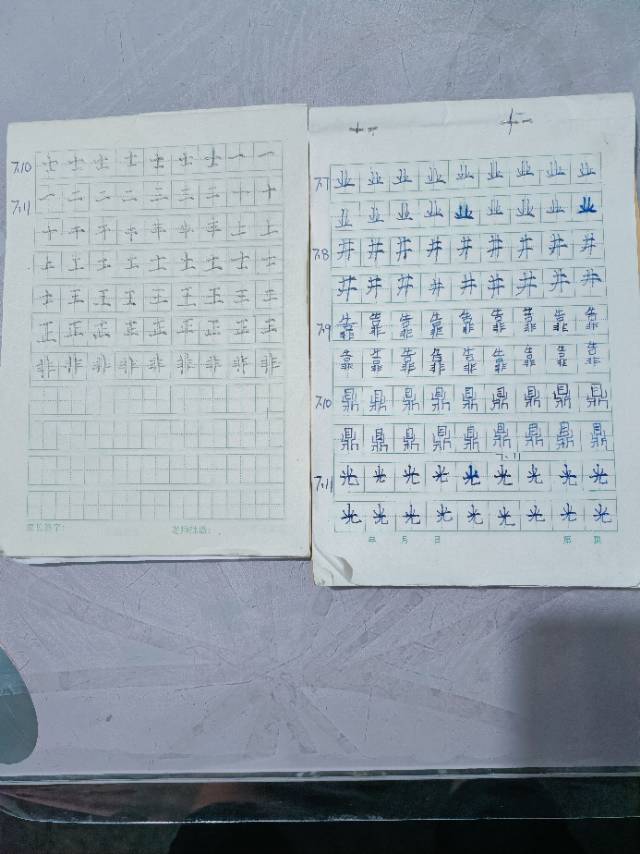 7.10 士 士 士 士 士 士 士 一 一
7.11 一 二 二 二 二 二 二 十 十
干 干 干 丰 丰 丰 丰 士 上
上 工 工 土 土 土 土 土 土
土 王 王 王 王 王 王 王 王
正 正 正 正 正 正 正 正 正
非 非 非 非 非 非 非 非 非
家长签字:
7.7 业 业 业 业 业 业 业 业 业
业 业 业 业 业 业 业 业 业
7.8 井 井 井 井 井 井 井 井 井
井 井 井 井 井 井 井 井 井
7.9 靠 靠 靠 靠 靠 靠 靠 靠 靠
靠 靠 靠 靠 靠 靠 靠 靠 靠
7.10 鼎 鼎 鼎 鼎 鼎 鼎 鼎 鼎 鼎
鼎 鼎 鼎 鼎 鼎 鼎 鼎 鼎 鼎
7.11
7.11 光 光 光 光 光 光 光 光 光
光 光 光 光 光 光 光 光 光
年 月 日 第 页